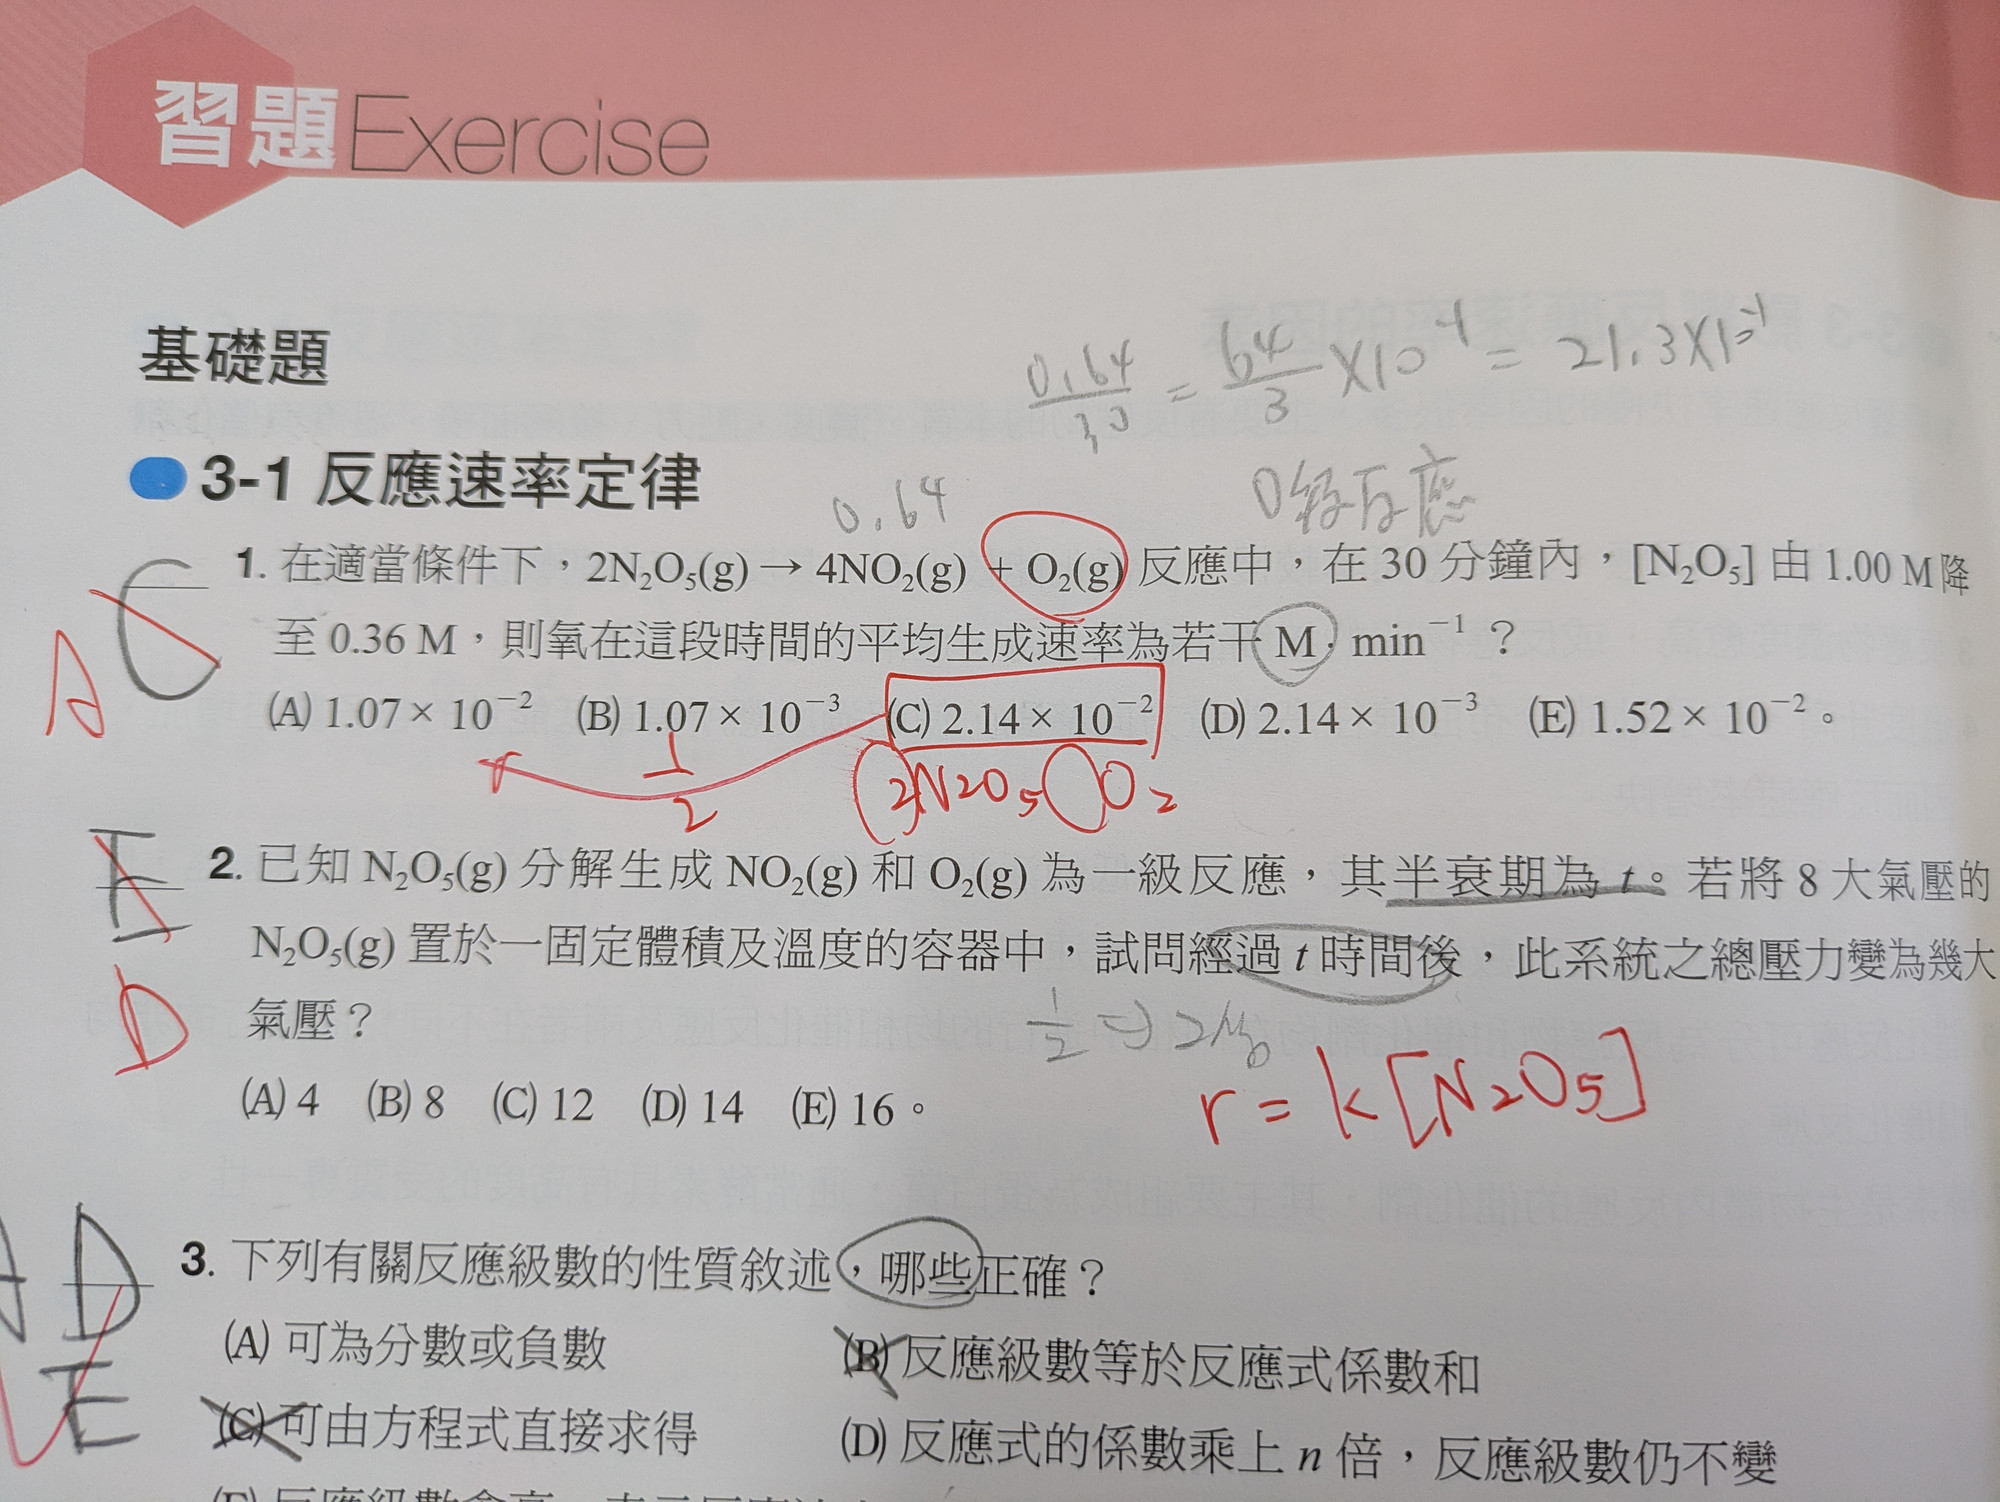 習題Exercise
基礎題
0.64/30 = 64/3 ×10⁻¹ = 21.3×10⁻¹
3-1 反應速率定律
0.64
0級反應
C
A
1. 在適當條件下，2N₂O₅(g) → 4NO₂(g) + O₂(g) 反應中，在 30 分鐘內，[N₂O₅] 由 1.00 M 降
至 0.36 M，則氧在這段時間的平均生成速率為若干 M．min⁻¹？
(A) 1.07 × 10⁻² (B) 1.07 × 10⁻³ (C) 2.14 × 10⁻² (D) 2.14 × 10⁻³ (E) 1.52 × 10⁻²。
1/2
2N2O5 O2
E
D
2. 已知 N₂O₅(g) 分解生成 NO₂(g) 和 O₂(g) 為一級反應，其半衰期為 t。若將 8 大氣壓的
N₂O₅(g) 置於一固定體積及溫度的容器中，試問經過 t 時間後，此系統之總壓力變為幾大
氣壓？
1/2 ⇒
(A) 4 (B) 8 (C) 12 (D) 14 (E) 16。
r = k[N2O5]
A D
E
3. 下列有關反應級數的性質敘述，哪些正確？
(A) 可為分數或負數 (B) 反應級數等於反應式係數和
(C) 可由方程式直接求得 (D) 反應式的係數乘上 n 倍，反應級數仍不變